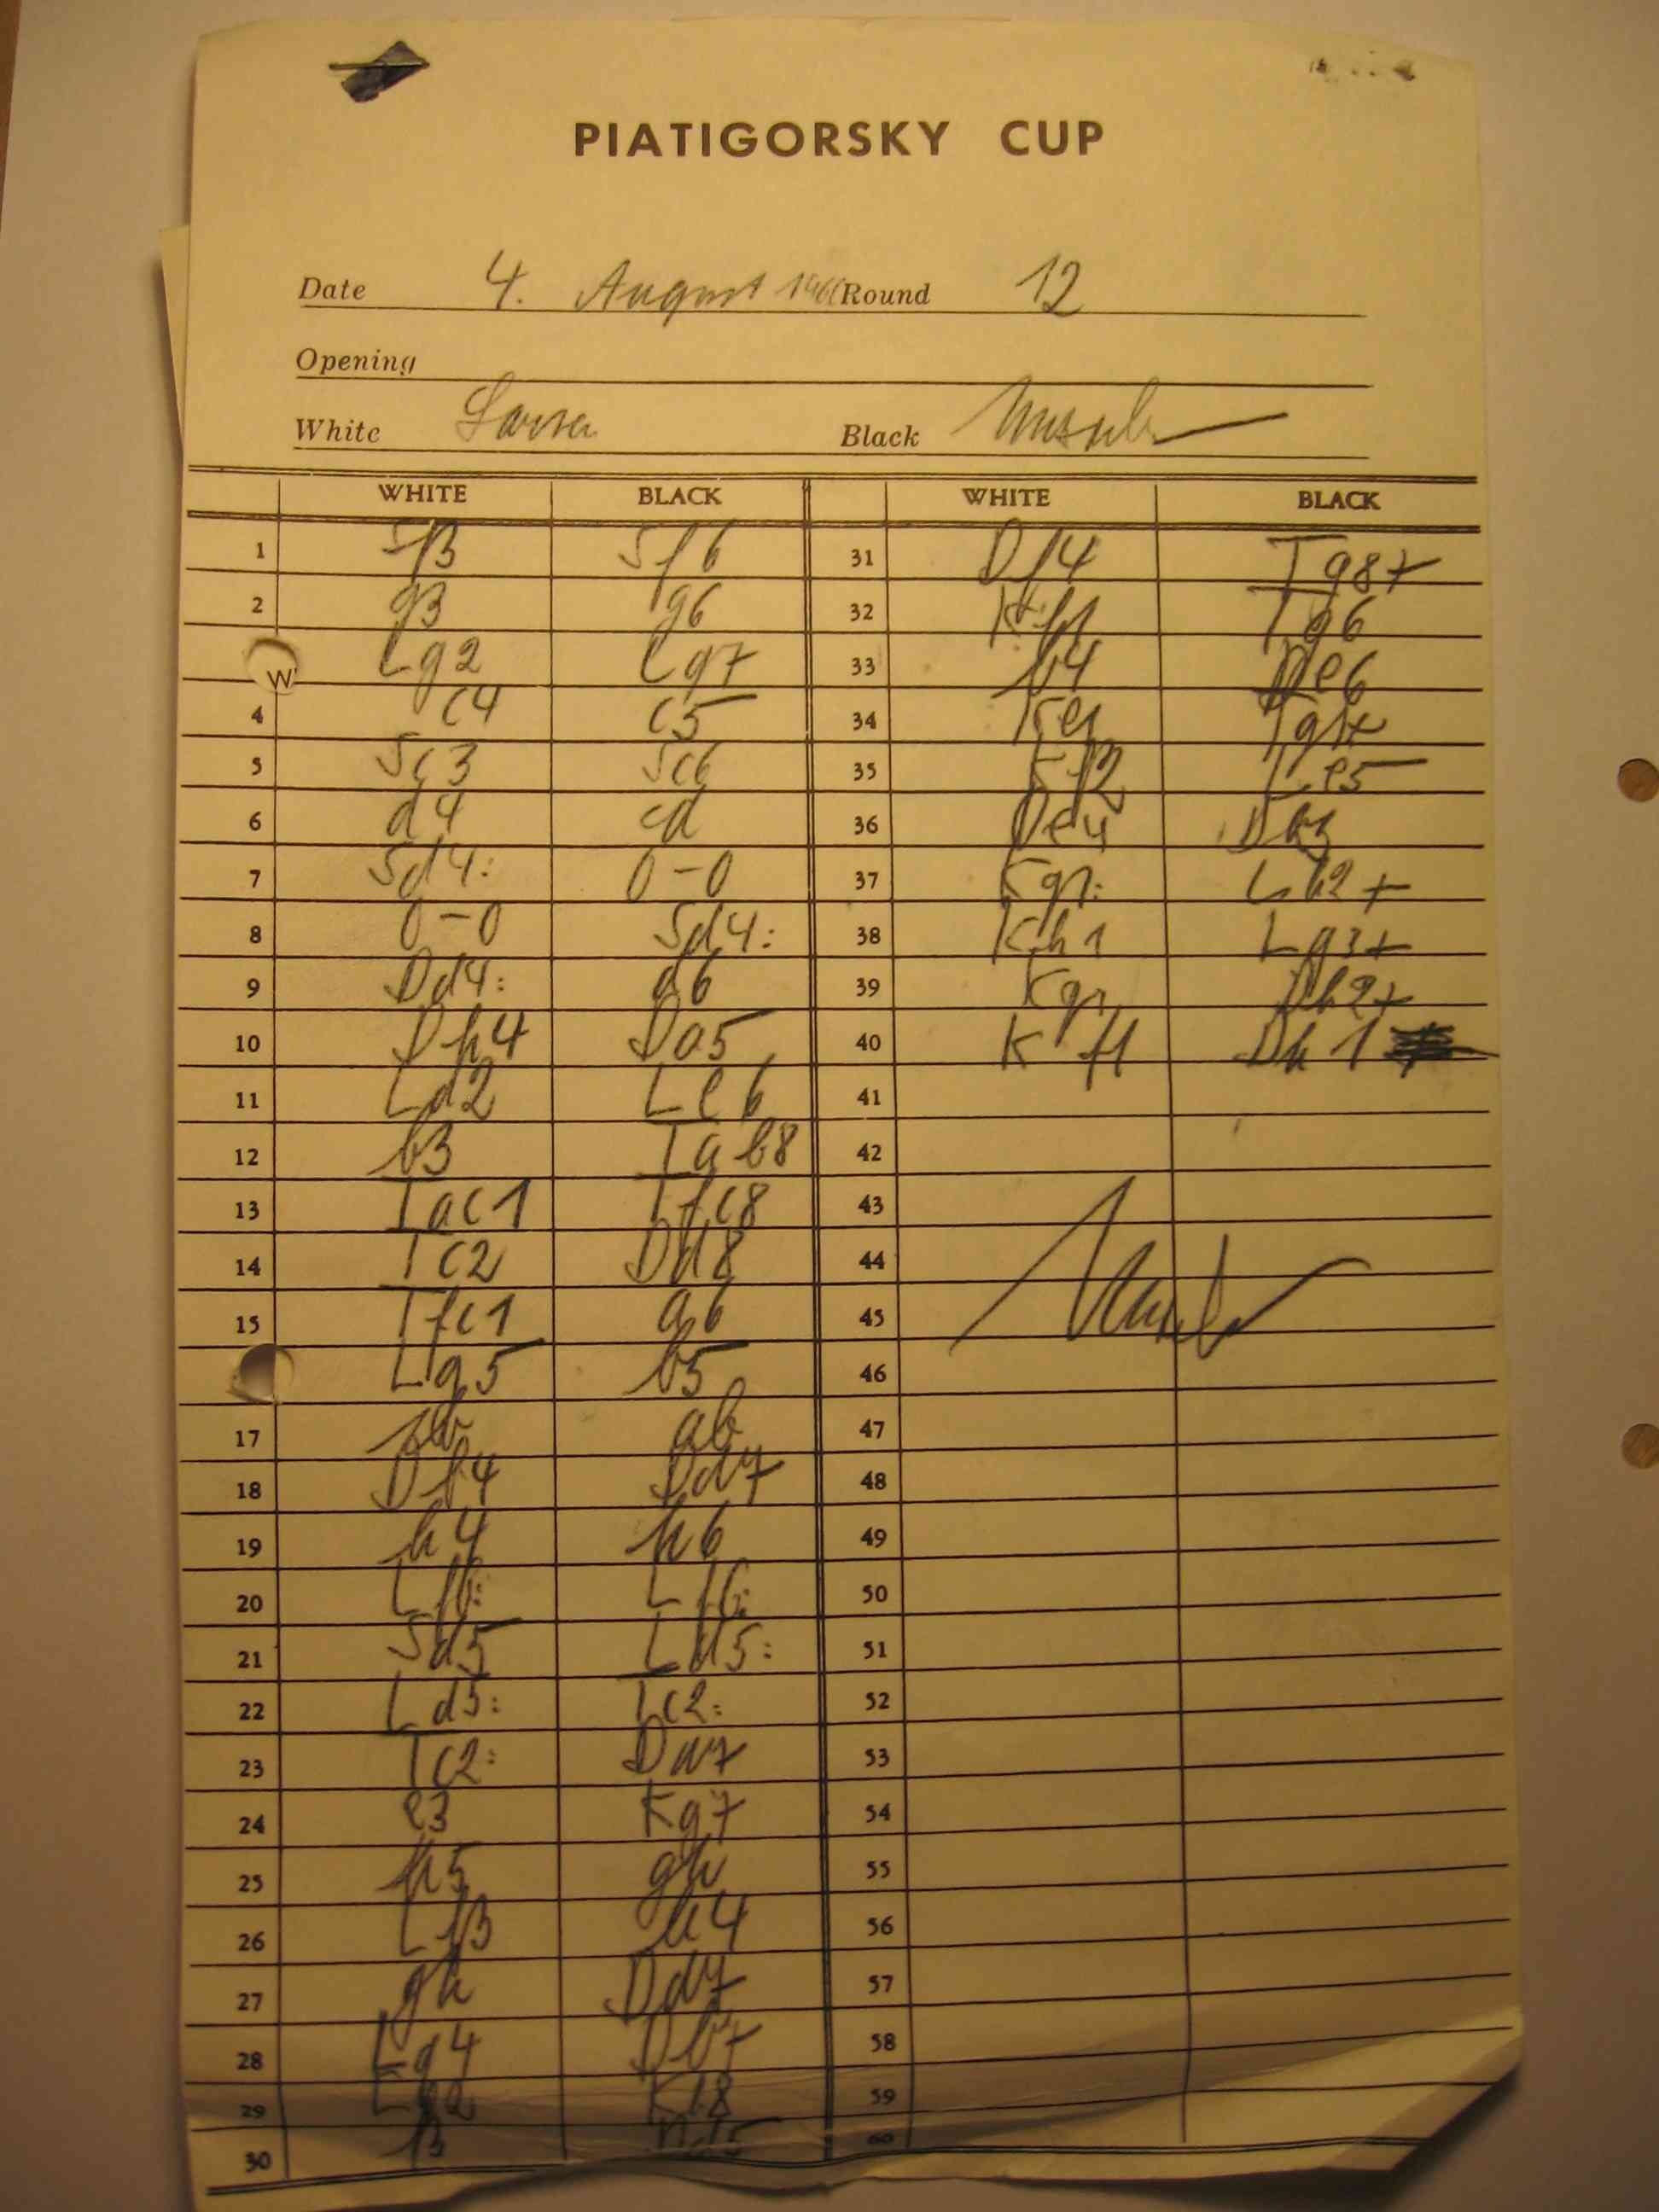 PIATIGORSKY CUP
Date 4. August Round 12
Opening
White Larsen Black
WHITE BLACK WHITE BLACK
1 Sf3 Sf6 31 Df4 Tg8+
2 g3 g6 32 Kf1 Tg6
W Lg2 Lg7 33 b4 De6
4 c4 c5 34 Ke1 Tg1+
5 Sc3 Sc6 35 Kf2 Le5
6 d4 cd 36 De4 Dh3
7 Sd4: 0-0 37 Kg1: Lh2+
8 0-0 Sd4: 38 Kh1 Lg3+
9 Dd4: d6 39 Kg1 Dh2+
10 Dh4 Da5 40 Kf1 Dh1
11 Ld2 Le6 41
12 b3 Tab8 42
13 Tac1 Tfc8 43
14 Tc2 Dd8 44
15 Tfc1 a6 45
Lg5 b5 46
17 cb ab 47
18 Df4 Dd7 48
19 h4 h6 49
20 Lf6: Lf6: 50
21 Sd5 Ld5: 51
22 Ld5: Tc2: 52
23 Tc2: Da7 53
24 e3 Kg7 54
25 h5 gh 55
26 Lf3 h4 56
27 gh Dd7 57
28 Lg4 Db7 58
29 Kf8 59
30 f3 60